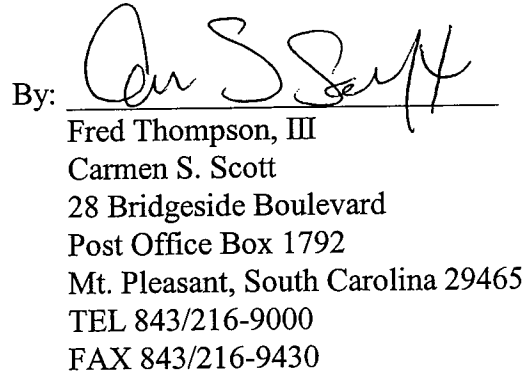 By: Car S Scott
Fred Thompson, III
Carmen S. Scott
28 Bridgeside Boulevard
Post Office Box 1792
Mt. Pleasant, South Carolina 29465
TEL 843/216-9000
FAX 843/216-9430